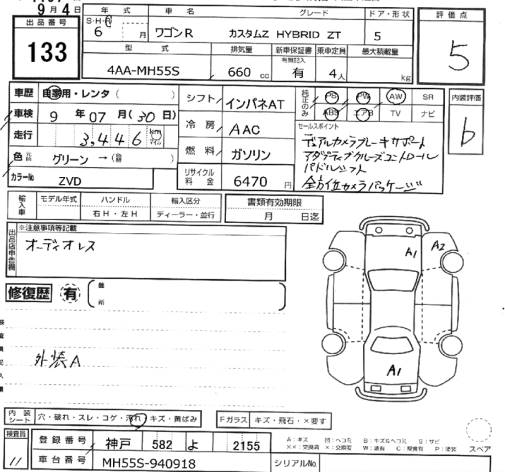 9月4日
出品番号
133
年式
車名
グレード
ドア・形状
評価点
S・H・R
6 月
ワゴンR
カスタムZ HYBRID ZT
5
5
型式
排気量
新車保証書
乗車定員
最大積載量
4AA-MH55S
660 cc
有無記入
有
4人
kg
車歴
自家用・レンタ
シフト
インパネAT
純正のみ
PS
PW
AW
SR
ABS
エアB
TV
ナビ
内装評価
b
車検
9 年 07 月 (30 日)
走行
3,446
km
冷房
AAC
セールスポイント
デュアルカメラブレーキサポート
アダプティブクルーズコントロール
パドルシフト
全方位カメラパッケージ
色
グリーン
燃料
ガソリン
カラーNo
ZVD
リサイクル料金
6470 円
輸入車
モデル年式
ハンドル
輸入区分
右H・左H
ディーラー・並行
書類有効期限
月 日迄
出品店申告欄
※注意事項等記載
オーディオレス
修復歴
有
箇所
A1
A2
A1
外装A
内装シート
穴・破れ・スレ・コゲ・汚れ・キズ・黄ばみ
Fガラス
キズ・飛石・×要す
スペア
検査員
11
登録番号
神戸 582 よ 2155
車台番号
MH55S-940918
シリアルNo